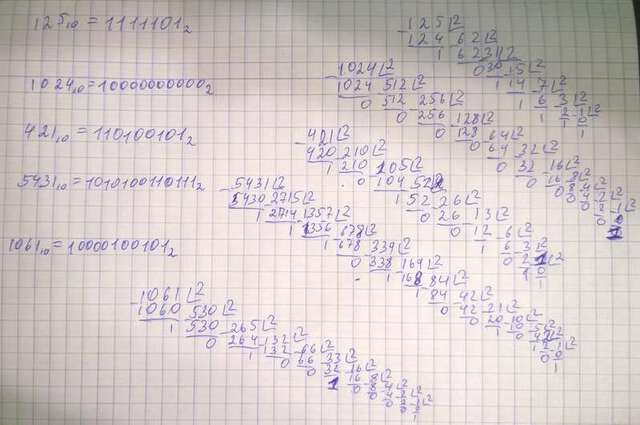 125₁₀ = 1111101₂
1024₁₀ = 10000000000₂
421₁₀ = 110100101₂
5431₁₀ = 1010100110111₂
1061₁₀ = 10000100101₂
-125|2
124 62|2
1 62 31|2
0 30 15|2
1 14 7|2
1 6 3|2
1 2 1|2
-1024|2
1024 512|2
0 512 256|2
0 256 128|2
0 128 64|2
0 64 32|2
0 32 16|2
-421|2
420 210|2
1 210 105|2
0 104 52|2
1 52 26|2
0 26 13|2
0 12 6|2
1 6 3|2
-5431|2
5430 2715|2
1 2714 1357|2
1 1356 678|2
1 678 339|2
0 338 169|2
1 168 84|2
1 84 42|2
0 42 21|2
0 20 10|2
1 10 5|2
-1061|2
1060 530|2
1 530 265|2
0 264 132|2
1 132 66|2
0 66 33|2
0 32 16|2
1 16 8|2